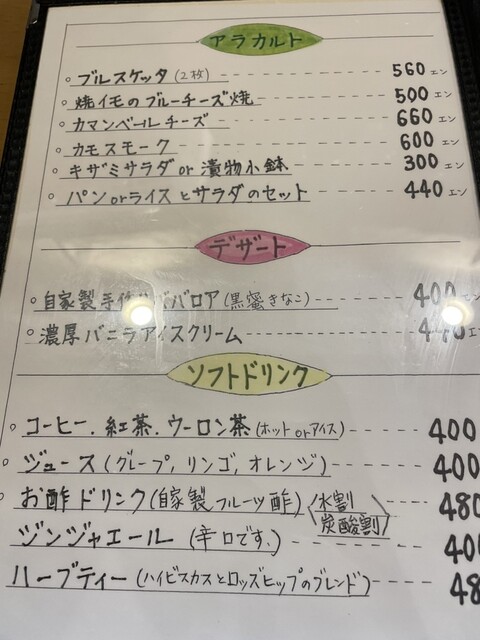 アラカルト
ブルスケッタ(2枚) 560エン
焼イモのブルーチーズ焼 500エン
カマンベールチーズ 660エン
カモスモーク 600エン
キザミサラダor漬物小鉢 300エン
パンorライスとサラダのセット 440エン
デザート
自家製手作りババロア(黒蜜きなこ) 400
濃厚バニラアイスクリーム
ソフトドリンク
コーヒー.紅茶.ウーロン茶(ホットorアイス) 400
ジュース(グレープ,リンゴ,オレンジ) 400
お酢ドリンク(自家製フルーツ酢) 水割 480
炭酸割
ジンジャエール(辛口です.) 400
ハーブティー(ハイビスカスとロッズヒップのブレンド) 48